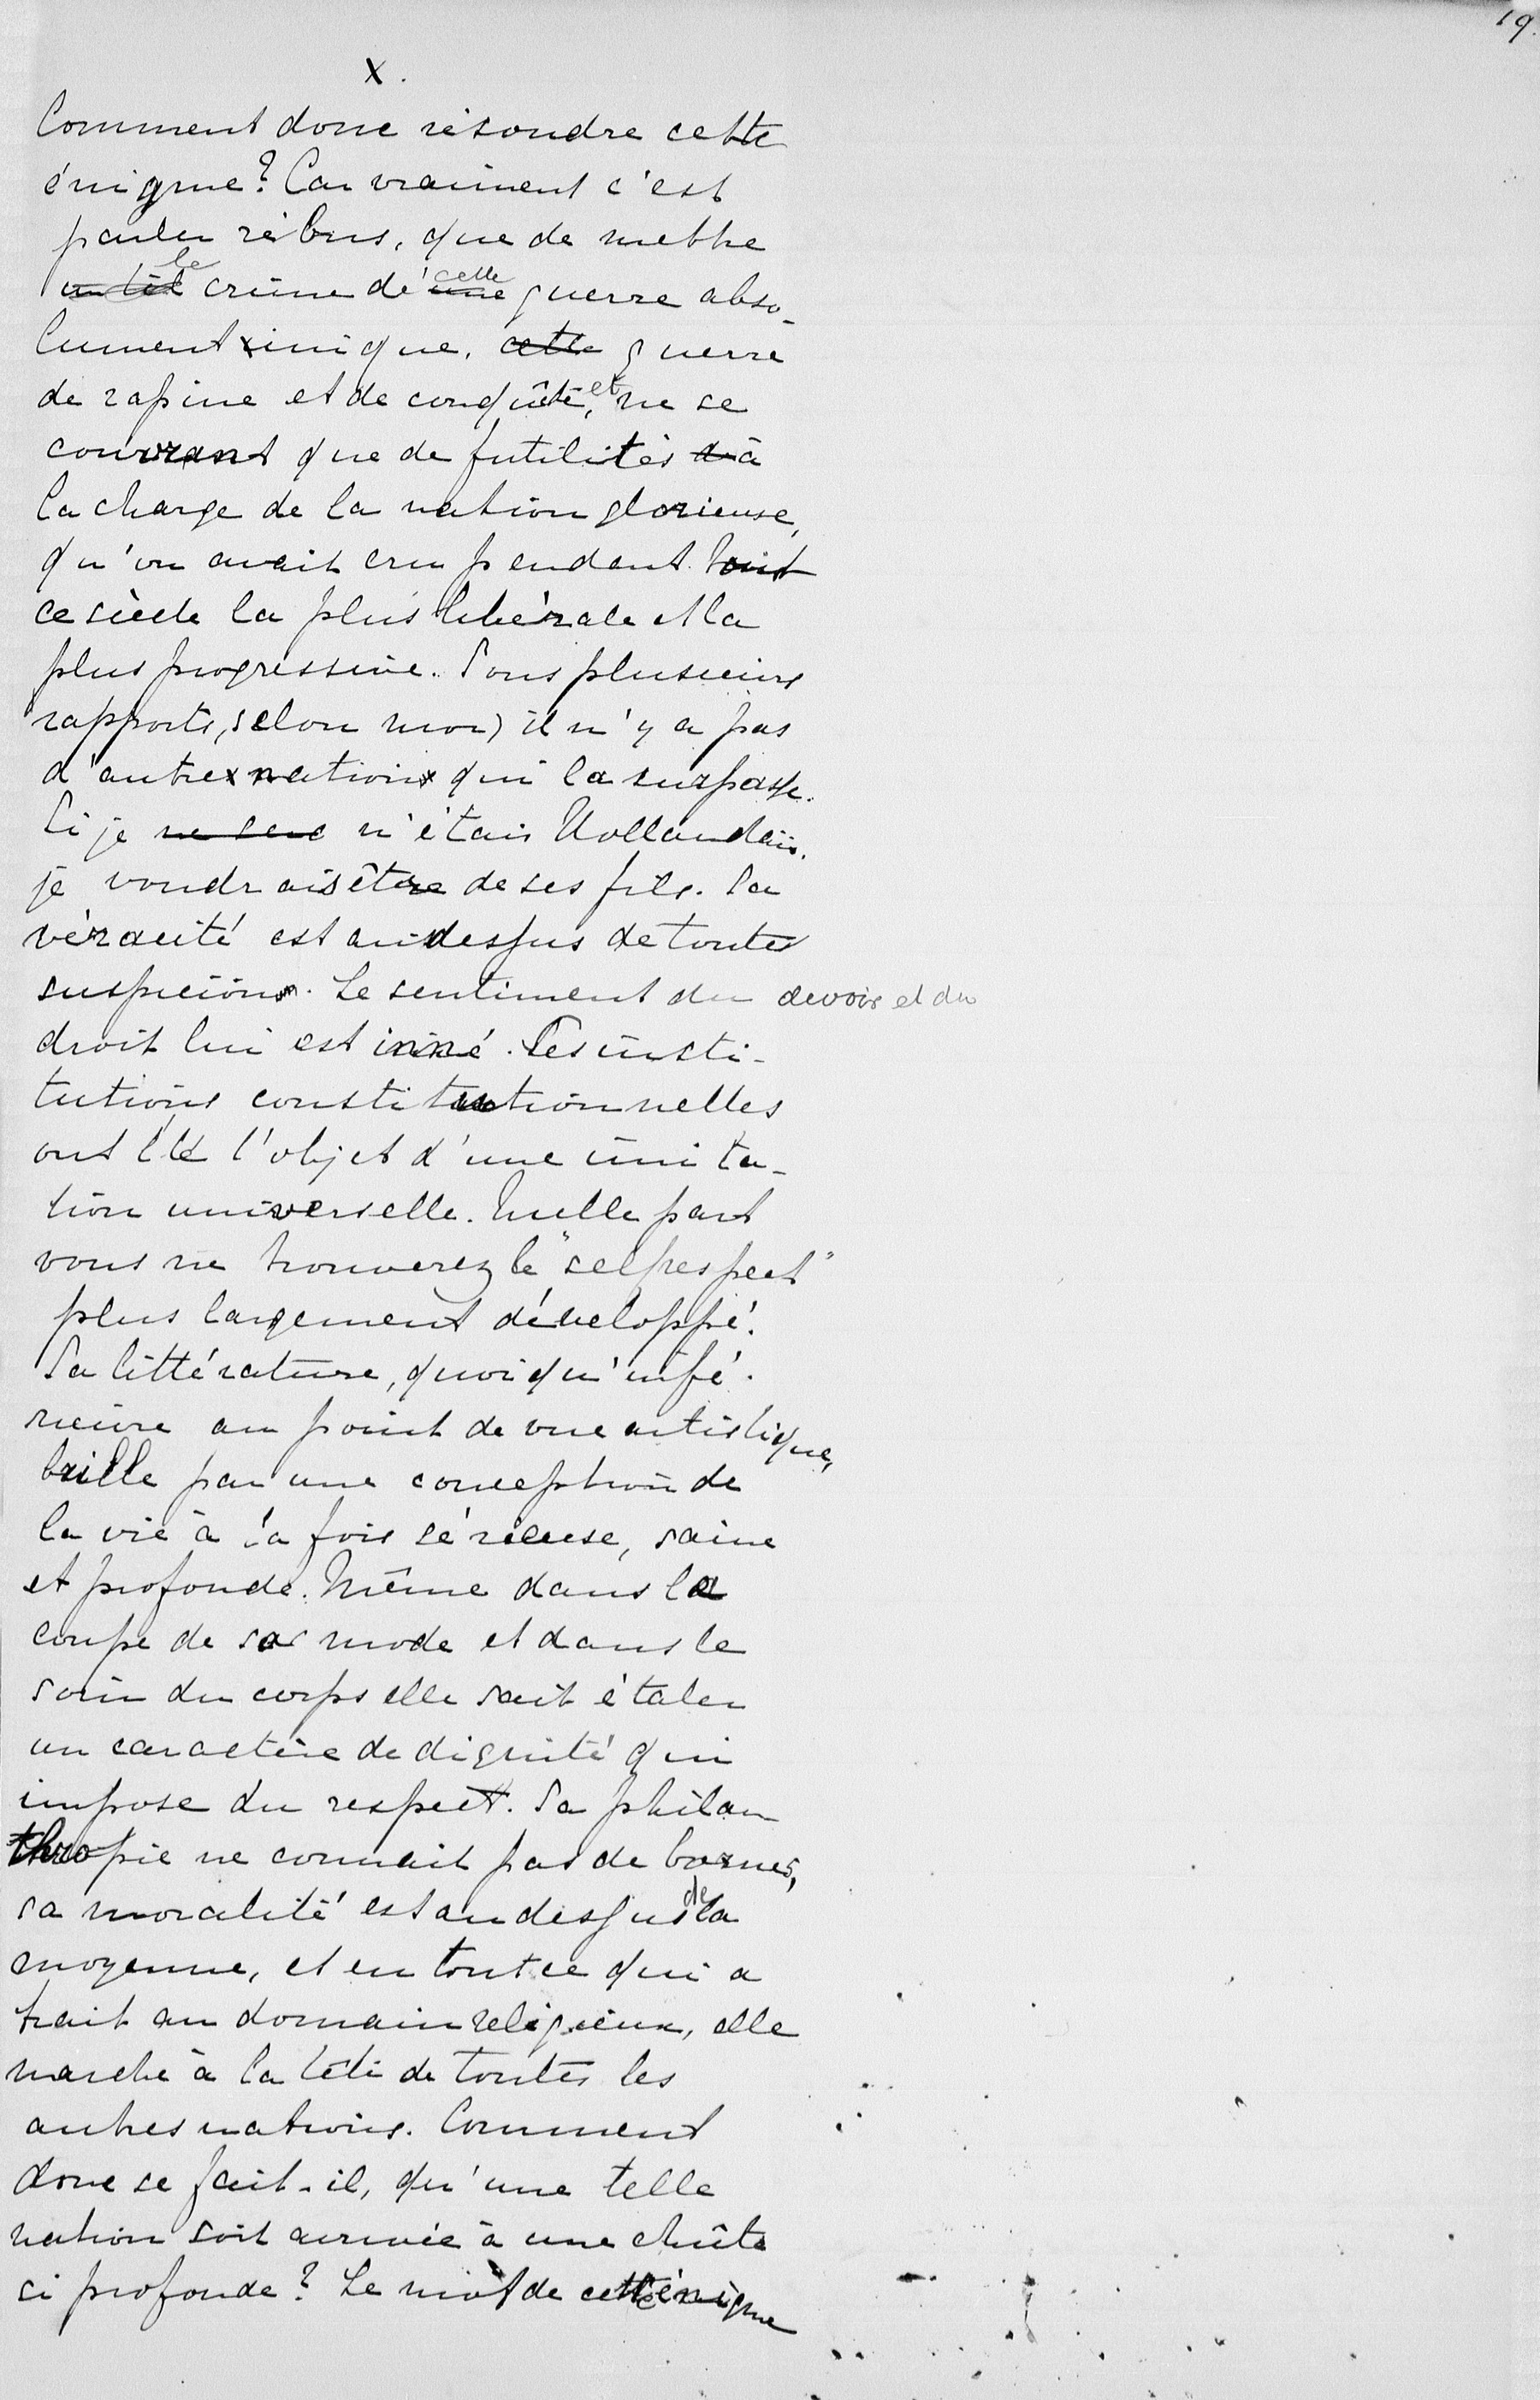 19.
X.
Comment donc résoudre cette
énigme? Car vraiment c'est
parler rébus, que de mettre
un tel le crime d'une cette guerre abso-
lument inique, cette guerre
de rapine et de conquête, et ne se
couvrant que de futilités à
la charge de la nation glorieuse,
qu'on avait cru pendant tout
ce siècle la plus libérale et la
plus progressive. Sous plusieurs
rapports, selon moi, il n'y a pas
d'autre nation qui la surpasse.
Si je n'étais Hollandais,
je voudrais être de ses fils. Sa
véracité est audessus de toutes
suspicion. Le sentiment du devoir et du
droit lui est inné. Ses insti-
tutions constitutionnelles
ont été l'objet d'une imita-
tion universelle. Nulle part
vous ne trouverez le "selfrespect"
plus largement développé.
Sa littérature, quoiqu'infé-
rieure au point de vue artistique,
brille par une conception de
la vie à la fois sérieuse, saine
et profonde. Même dans la
coupe de sa mode et dans le
soin du corps elle sait étaler
un caractère de dignité qui
impose du respect. Sa philan
thropie ne connait pas de bornes,
sa moralité est audessus de la
moyenne, et en tout ce qui a
trait au domain religieux, elle
marche à la tête de toutes les
autres nations. Comment
donc se fait-il, qu'une telle
nation soit arrivée à une chûte
si profonde? Le mot de cette énigme